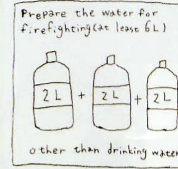 Prepare the water for
firefighting(at least 6L)
2L + 2L + 2L
other than drinking water